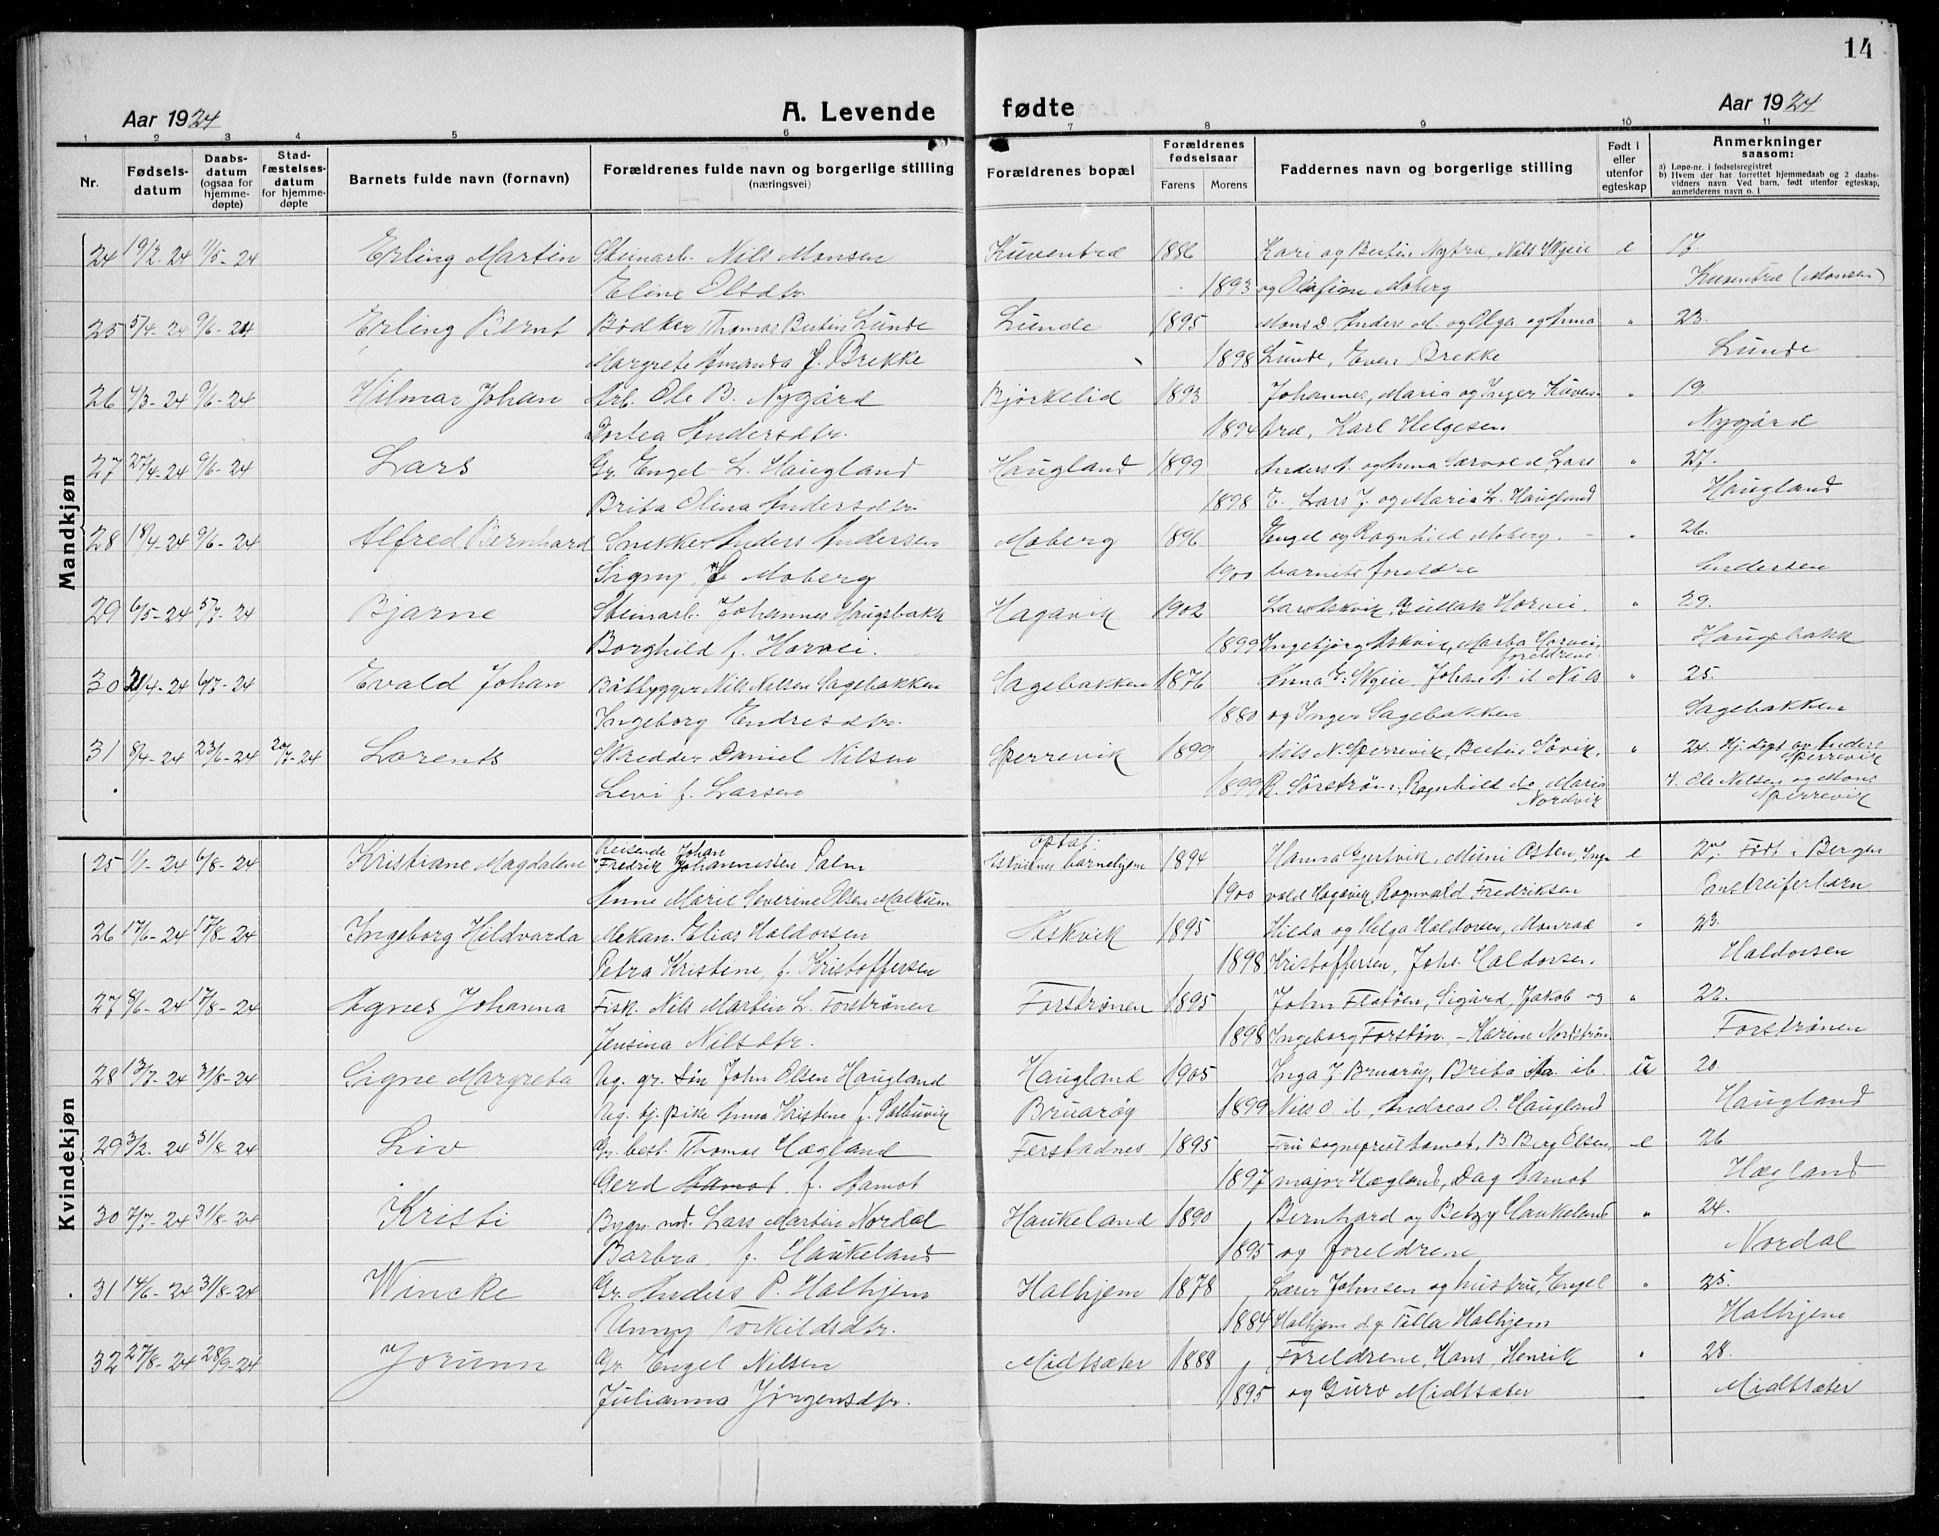 14
Aar 1924 A. Levende fødte Aar 1924
1 2 3 4 5 6 7 8 9 10 11
Nr. Fødsels-datum Daabs-datum (ogsaa for hjemme-døpte) Stad-fæstelses-datum for hjemme-døpte Barnets fulde navn (fornavn) Forældrenes fulde navn og borgerlige stilling (næringsvei) Forældrenes bopæl Forældrenes fødselsaar Farens Morens Faddernes navn og borgerlige stilling Født i eller utenfor egteskap Anmerkninger saasom:
a) Løpe-nr. i fødselsregistret
b) Hvem der har forrettet hjemmedaab og 2 daabs-vidners navn. Ved barn, født utenfor egteskap, anmelderens navn o. l
Mandkjøn
24 19/2-24 11/5-24 Erling Martin Steinarb. Nils Monsen Kuventræ 1886 Kari og Bertin Nytræ, Nils Skjeie e 17
Eline Elsdtr. 1893 og Olufine Moberg Kuventræ (Monsen)
25 5/4-24 9/6-24 Erling Bernt Bødker Thomas Bertin Lunde Lunde 1895 Mons d. Anders M. og Olga og Anna " 23.
Margrete Amanda f. Brekke 1898 Lunde, Even Brekke Lunde
26 4/3-24 9/6-24 Hilmar Johan Arb. Ole B. Nygård Bjørkelid 1893 Johannes, Maria og Inger Kuven- " 19.
Dortea Andersdtr. 1894 træ, Karl Helgesen Nygård
27 27/4-24 9/6-24 Lars Gr. Engel L. Haugland Haugland 1899 Anders A. og Anna Særvold, Lars " 27.
Brita Olina Andersdtr. 1898 E., Lars J. og Maria L. Haugland Haugland
28 18/4-24 9/6-24 Alfred Bernhard Snekker Anders Andersen Moberg 1896 Engel og Ragnhild Moberg. - " 26.
Signy E. Moberg 1900 barnets foreldre Andersen
29 6/5-24 5/7-24 Bjarne Steinarb. Johannes Haugsbakk Hagavik 1902 Lars Askvik, Gullak Horvei. " 29.
Borghild f. Horvei. 1899 Ingebjørg Askvik, Marta Horvei, foreldrene. Haugsbakk
30 21/4-24 6/7-24 Evald Johan Båtbygger Nils Nilsen Sagebakken Sagebakken 1876 Anna E. Skjeie, Johan A. ib Nils " 25.
Ingeborg Endresdtr. 1880 og Inger Sagebakken Sagebakken
31 8/4-24 23/6-24 20/7-24 Lorents Skredder Daniel Nilsen Sperrevik 1899 Nils N. Sperrevik, Bertin Søvik. " 24. Hj. døpt av Anders Sperrevik
Levi f. Larsen 1899 R. Sørstrøm, Ragnhild do, Maria Nordvik V. Ole Nilsen og Mons Sperrevik
Kvindekjøn
25 1/1-24 6/8-24 Kristiane Magdalene Reisende Johan Fredrik Johannessen Palm optat: Askviknes barnehjem 1894 Hanna Gjertvik, Muni Osten, Ing- e 27. Født i Bergen
Anne Marie Severine Elsen Malkum 1900 vald Hagavik, Ragnvald Fredriksen Omstreiferbarn
26 17/6-24 17/8-24 Ingeborg Hildvarda Mekan. Elias Haldorsen Askvik 1895 Hilda og Helga Haldorsen, Monrad " 23.
Petra Kristene, f. Kristoffersen 1898 Kristoffersen, Johs. Haldorsen. Haldorsen
27 8/6-24 17/8-24 Agnes Johanna Fisk. Nils Martin L. Forstrønen Forstrønen 1895 John Flatøen, Sigurd, Jakob og " 22.
Jensina Nilsdtr. 1898 Ingeborg Forstøn. - Karine Nordstrøn Forstrønen
28 13/7-24 31/8-24 Signe Margreta Ug. gr. søn John Elsen Haugland Haugland 1905 Inga J. Bruarøy, Brita Aa. ib. u 20.
Ug. tj. pike Anna Kristine f. Salbuvik Bruarøy 1899 Nils O. ib, Andreas O. Haugland Haugland
29 3/2-24 31/8-24 Liv Gr. best. Thomas Hægland Ferstadnes 1895 Fru sogneprest Aamot, B. Berg Elsen, e 26
Gerd Aamot f. Aamot 1897 major Hægland, Dag Aamot Hægland
30 7/7-24 31/8-24 Kristi Bygn. md. Lars Martin Nordal Haukeland 1890 Bernhard og Betzy Haukeland " 24.
Barbra f. Haukeland 1895 og foreldrene Nordal
31 14/6-24 31/8-24 Wincke Gr. Anders P. Halhjem Halhjem 1878 Lars Johnsen og hustru, Engel " 25.
Anny Torkildsdtr. 1884 Halhjem og Tilla Halhjem Halhjem
32 27/8-24 28/9-24 Jorunn Gr. Engel Nilsen Midtsæter 1888 Foreldrene, Hans, Henrik " 28.
Julianna Jørgensdtr. 1895 og Guro Midtsæter Midtsæter